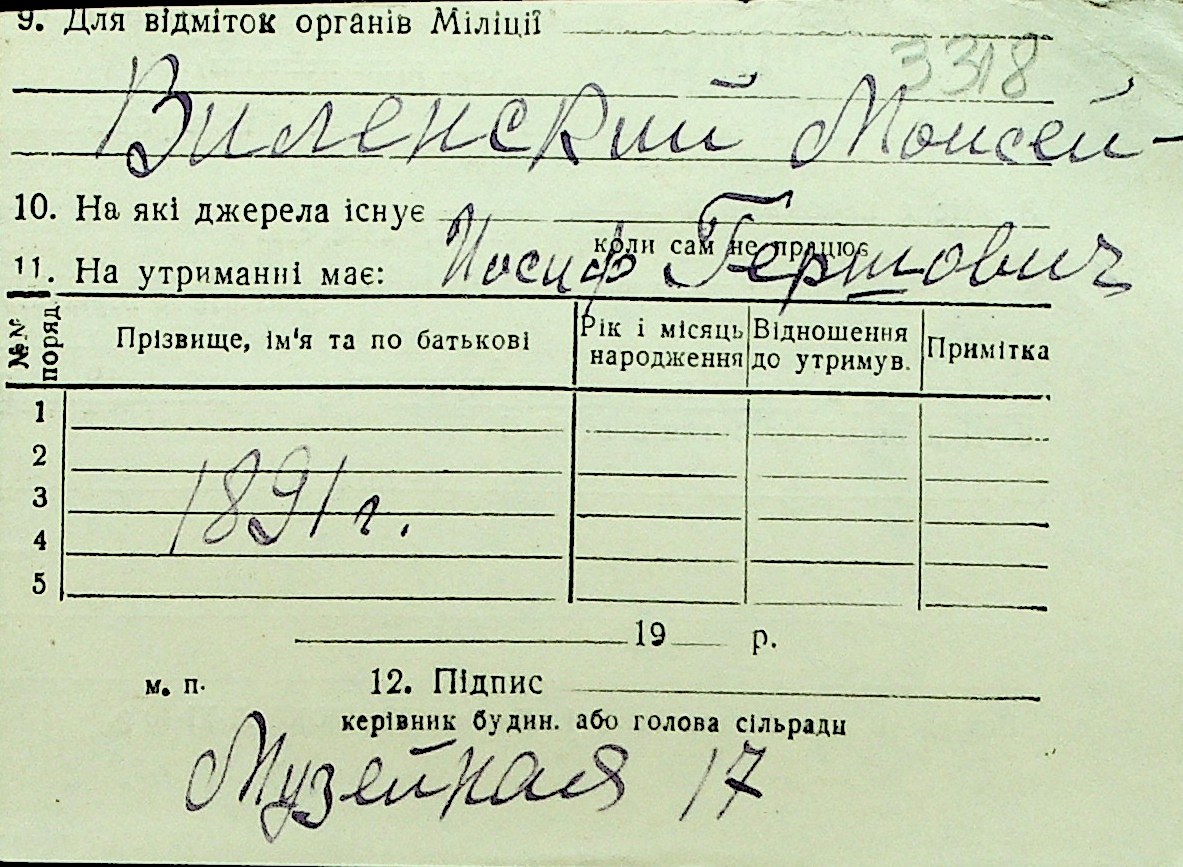 9. Для відміток органів Міліції
3318
Виленский Моисей-
10. На які джерела існує
коли сам не працює
Иосиф Гершович
11. На утриманні має:
№№ поряд
Прізвище, ім'я та по батькові
Рік і місяць народження
Відношення до утримув.
Примітка
1
2
3
4
5
1891 г.
19 р.
м. п.
12. Підпис
керівник будин. або голова сільради
Музейная 17